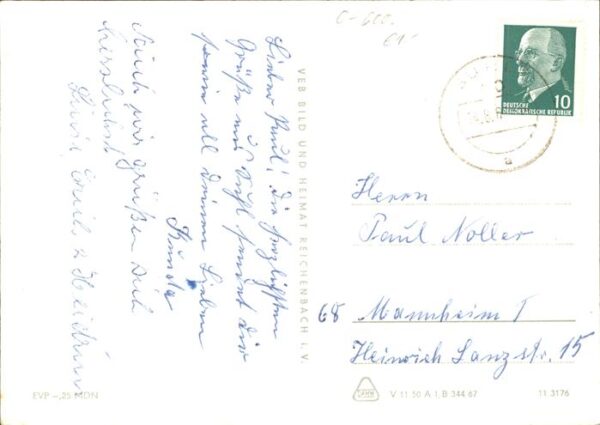 C-600.
61'
DEUTSCHE
DEMOKRATISCHE REPUBLIK
10
Lieber Paul! Die herzlichsten
Grüße aus Suhl sendet dir
sowie all Deinen Lieben
Auch wir grüßen Dich
herzlichst
VEB BILD UND HEIMAT REICHENBACH I. V.
Herrn
Paul Noller
68 Mannheim 1
Heinrich Lanzstr. 15
EVP –,25 MDN
V 11 50 A 1, B 344 67
11 3176